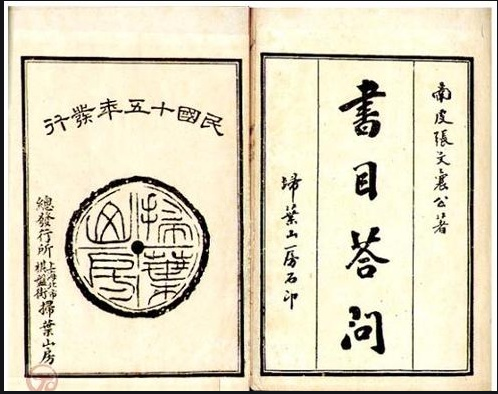 南皮張文襄公著
書目答問
埽葉山房石印
民國十五年發行
掃葉山房
總發行所
上海北市
棋盤街
掃葉山房